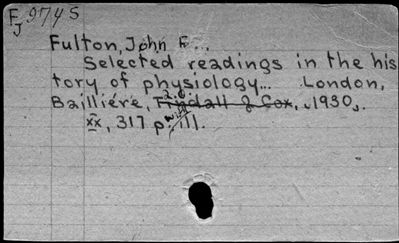 F 974 S
J
Fulton, John F...
Selected readings in the his
tory of physiology... London,
Baillière, Tindall & Cox, 1930.
xx, 317 p. ill.